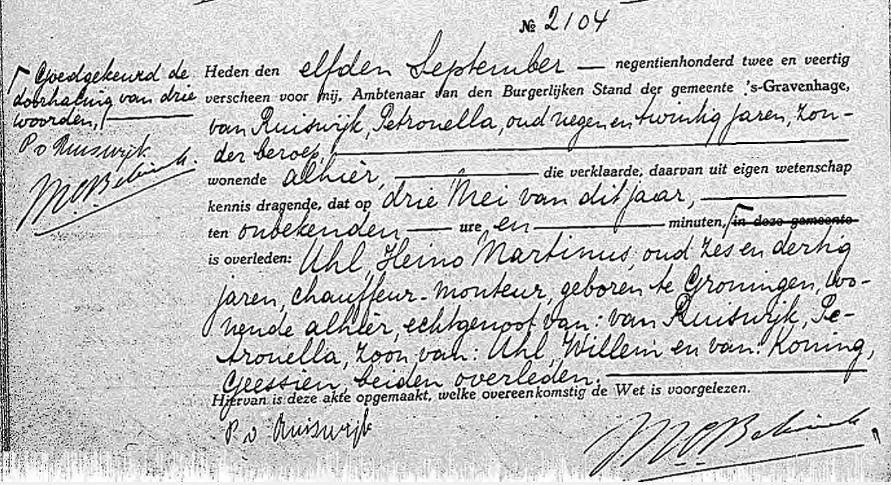 № 2104
Goedgekeurd de
doorhaling van drie
woorden,
P. v. Ruiswijk
Heden den elfden September — negentienhonderd twee en veertig
verscheen voor mij, Ambtenaar van den Burgerlijken Stand der gemeente 's-Gravenhage,
van Ruiswijk, Petronella, oud negen en twintig jaren, zon-
der beroep,
wonende alhier, — die verklaarde, daarvan uit eigen wetenschap
kennis dragende, dat op drie Mei van dit jaar,
ten onbekenden — ure, en — minuten, in deze gemeente
is overleden: Uhl, Heino Martinus, oud zes en dertig
jaren, chauffeur-monteur, geboren te Groningen, wo-
nende alhier, echtgenoot van: van Ruiswijk, Pe-
tronella, zoon van: Uhl, Willem en van: Koning,
Geessien, beiden overleden. —
Hiervan is deze akte opgemaakt, welke overeenkomstig de Wet is voorgelezen.
P. v. Ruiswijk